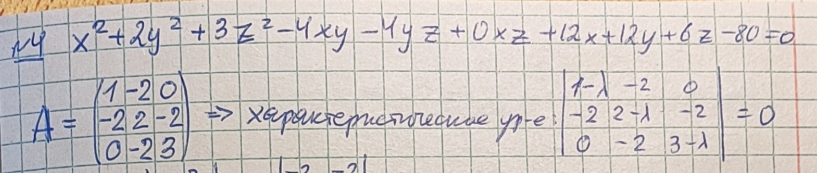 №4 x² + 2y² + 3z² - 4xy - 4yz + 0xz + 12x + 12y + 6z - 80 = 0
A = (1 -2 0; -2 2 -2; 0 -2 3) => характеристическое ур-е: |1-λ -2 0; -2 2-λ -2; 0 -2 3-λ| = 0
|-2 -2|